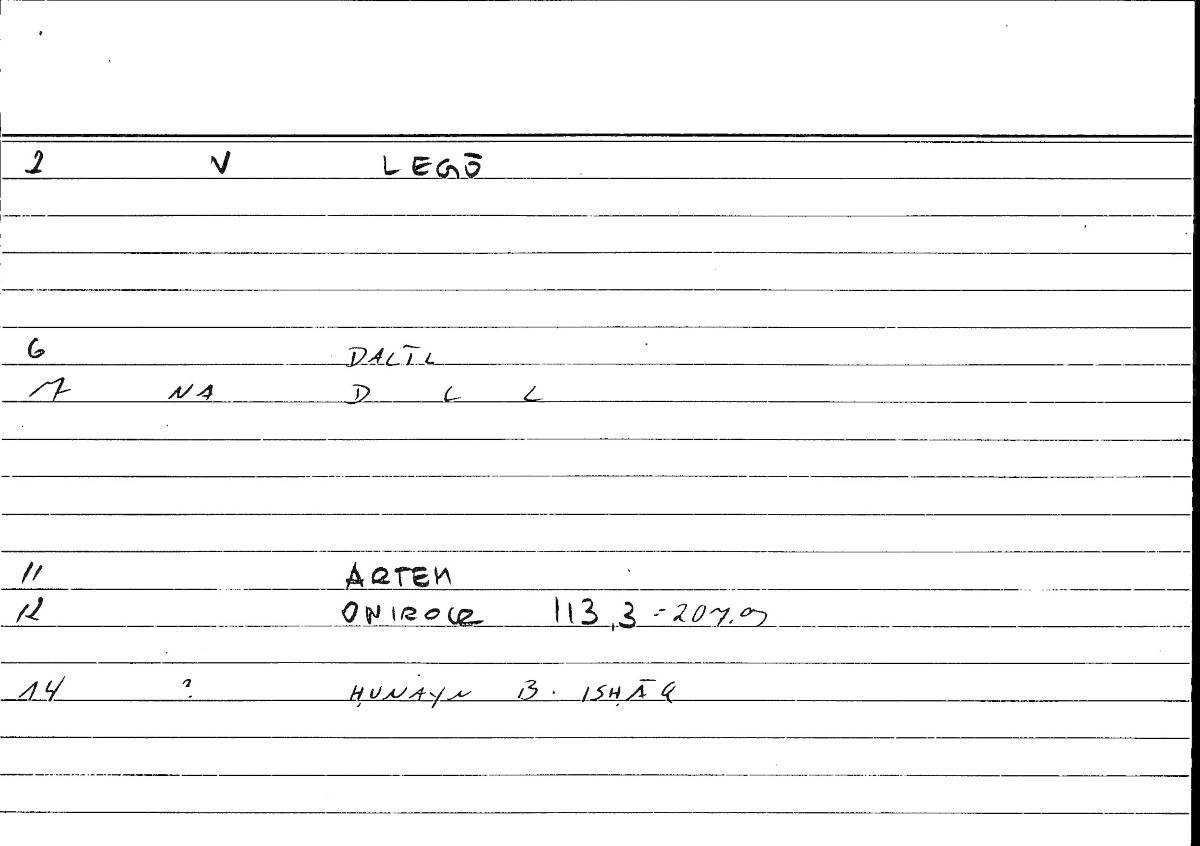 2 V LEGŌ
6 DALĪL
7 NA D L L
11 ARTEM
12 ONIROCR 113,3 = 207.9
14 ? ḤUNAYN B. ISḤĀQ